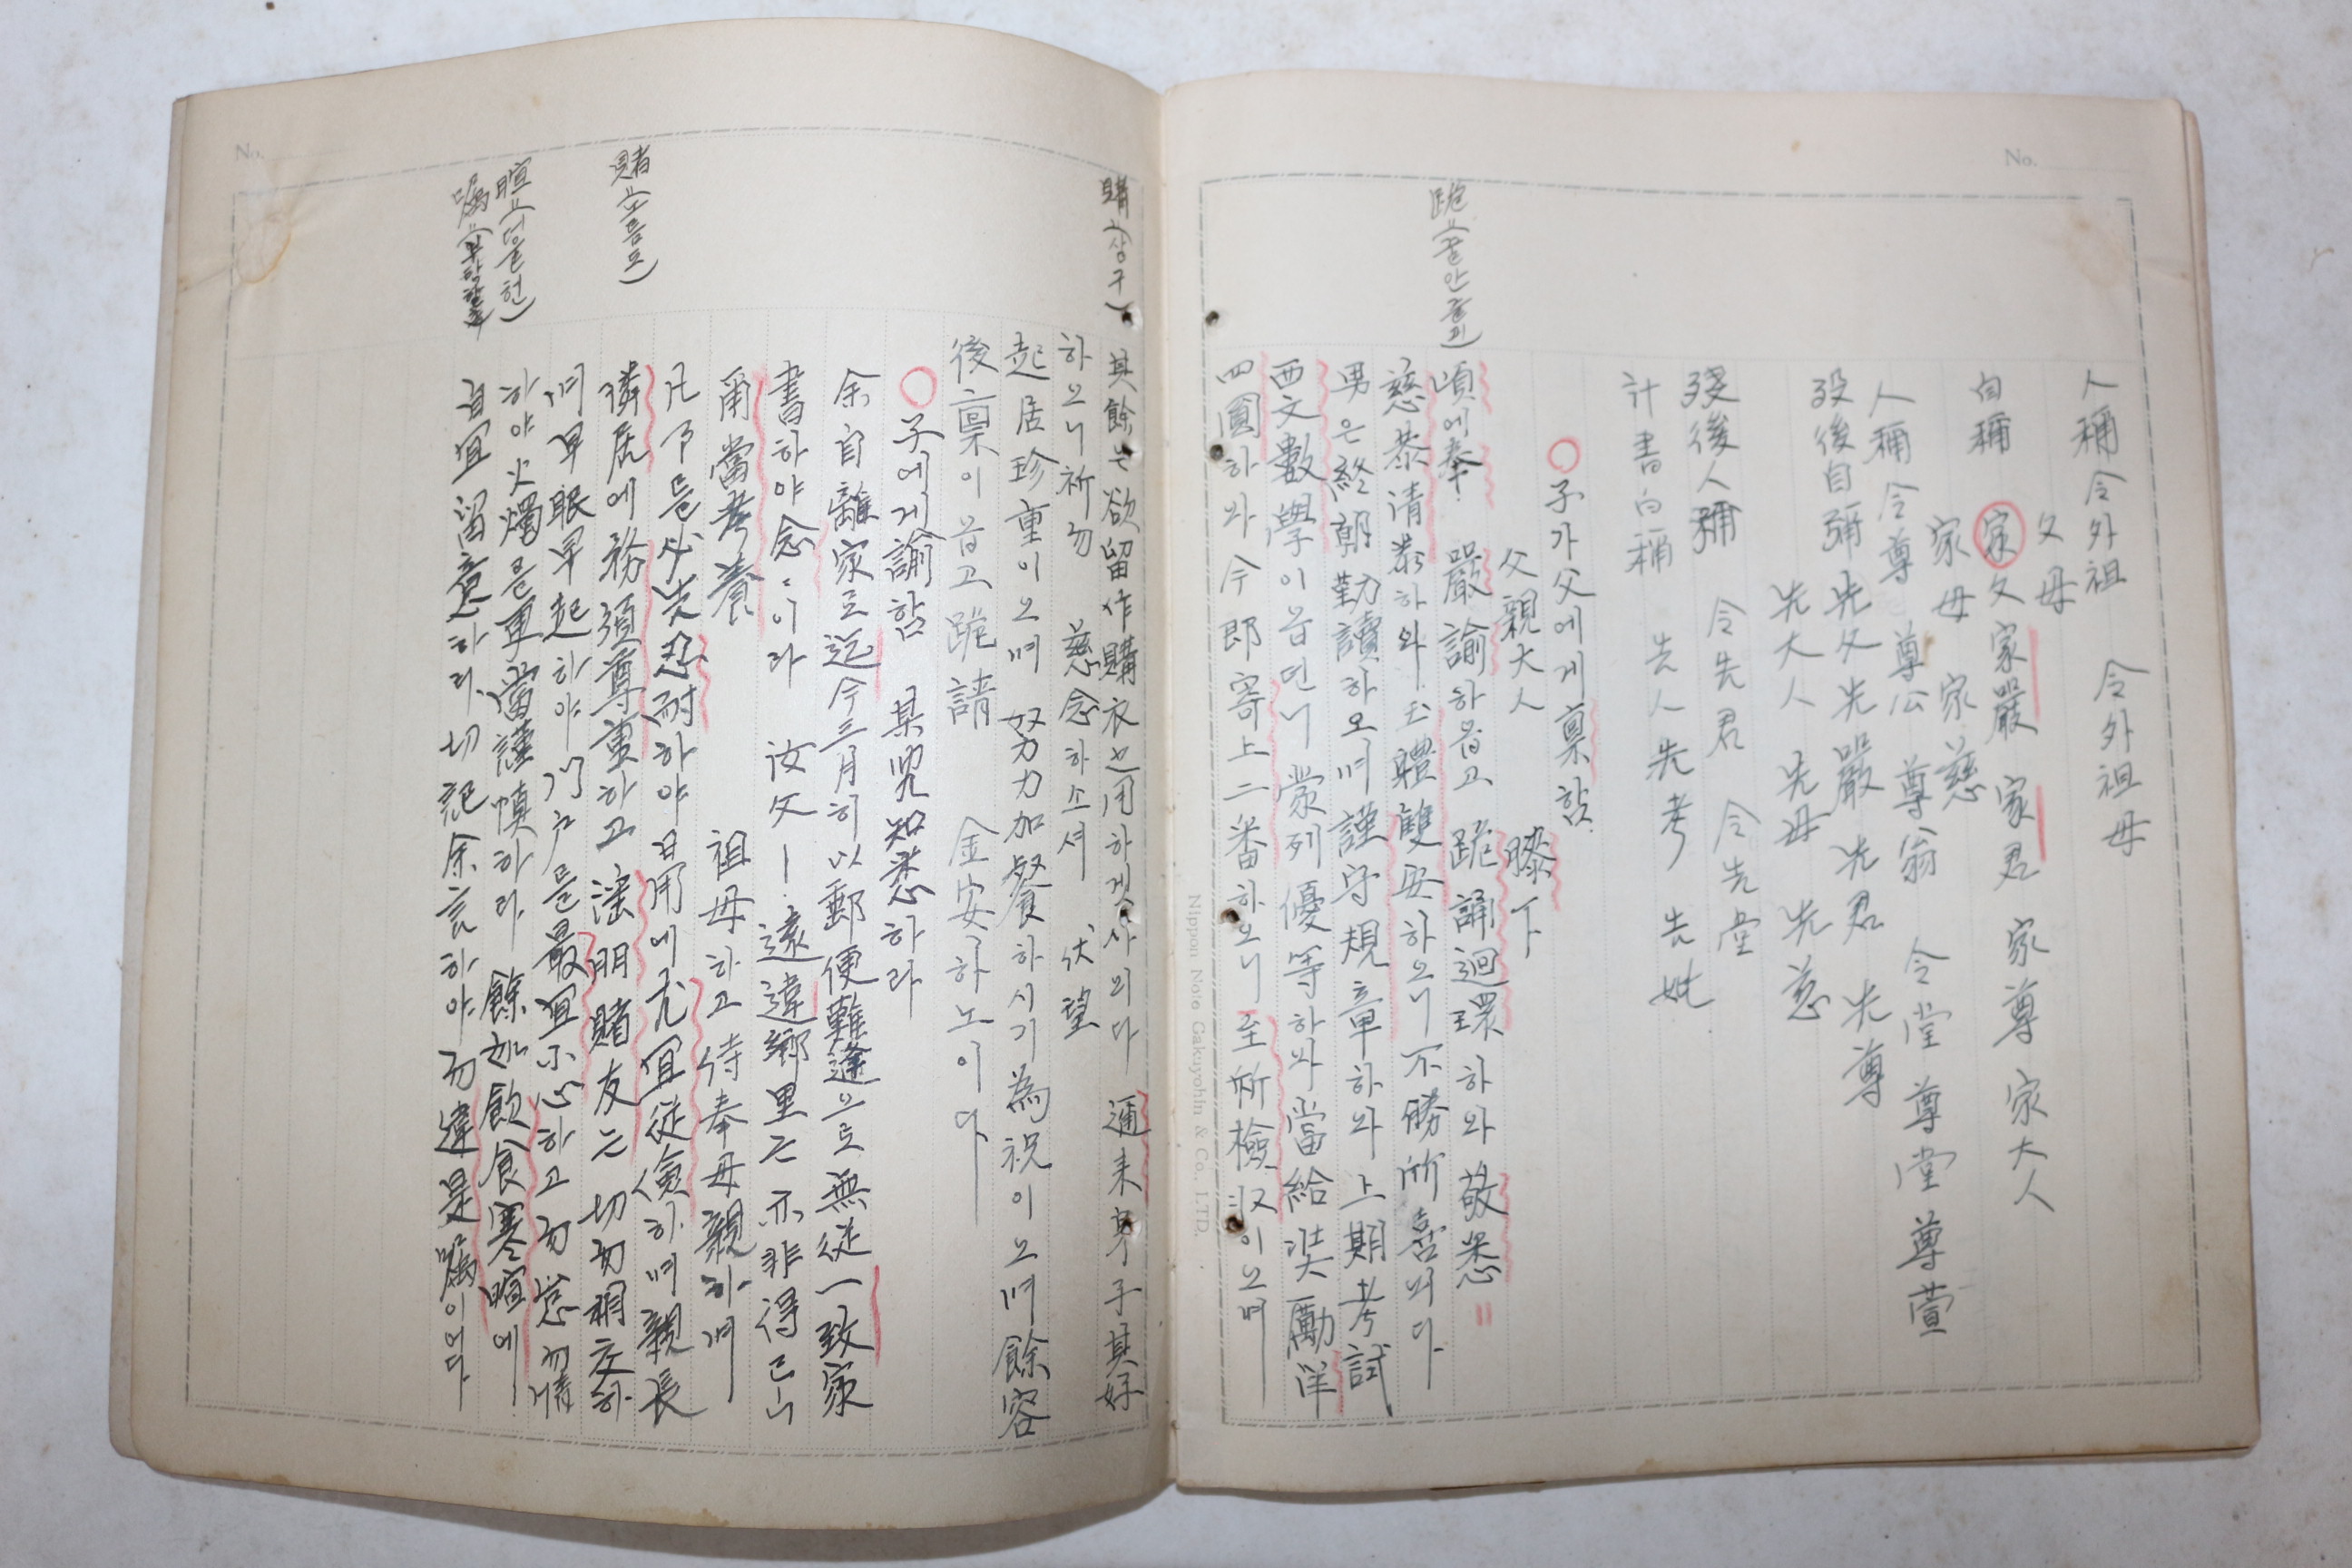 No.
人稱 令外祖 令外祖母
父母
自稱 家父 家嚴 家君 家尊 家大人
家母 家慈
人稱 令尊 尊公 尊翁 令堂 尊堂 尊萱
歿後自稱 先父 先嚴 先君 先尊
先大人 先母 先慈
歿後人稱 令先君 令先堂
計書自稱 先人 先考 先妣
○子가 父에게 稟함
父親大人 膝下
頃에 奉 嚴諭하옵고 跪誦迴環하와 敬悉
慈恭请 하와 玉體雙安하오니 不勝所喜외다
男은 終朝勤讀하오며 謹守規章하와 上期考試
西文數學이옵던니 蒙列優等하와 當給奬勵洋
四圓하와 今郎寄上二番하오니 至所檢収이오며
跪(꿀안즐괴)
Nippon Note Gakuyohin & Co., LTD.
其餘는 欲留作購衣之用하겟사외다 邇来身子甚好
하오니 祈勿 慈念하소셔 伏望
起居珍重이오며 努力加餐하시기 為祝이오며 餘容
後稟이옵고 跪請 金安하노이다
○子에게 諭함 某兒知悉하라
余自離家로 迄今三月히 以郵便難逢으로 無從一致家
書하야 念念이라 汝父ㅣ 遠違鄉里는 亦非得已니
甭當孝養 祖母하고 侍奉母親하며
凡事를 必先忍耐하야 日用에 尤宜從儉하며 親長
隣居에 務須尊重하고 淫朋賭友는 切勿相交하
며 早眠早起하야 門户를 最宜小心하고 勿怠勿惰
하야 火燭를 軍當謹慎하라 餘如飲食寒暄에
自宜留意하라 切記余言하야 勿違是囑이어다
購(상구)
賭(노름도)
暄(더울헌)
囑(부탁할촉)
No.